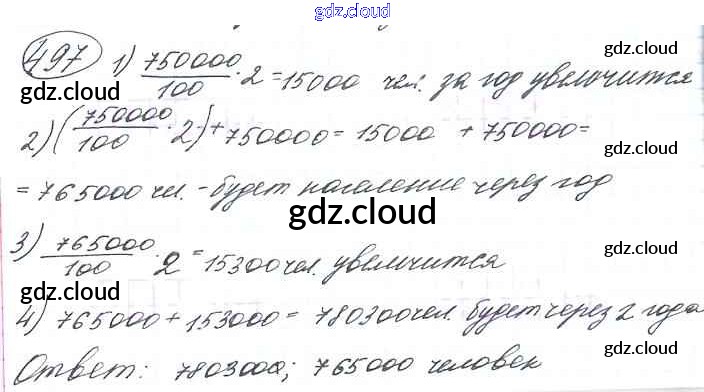 gdz.cloud
497 1) 750000/100 · 2 = 15000 чел. за год увеличится
gdz.cloud
gdz.cloud
2) (750000/100 · 2) + 750000 = 15000 + 750000 =
gdz.cloud
= 765000 чел. - будет население через год
gdz.cloud
3) 765000/100 · 2 = 15300 чел. увеличится
gdz.cloud
gdz.cloud
4) 765000 + 153000 = 780300 чел. будет через 2 года
gdz.cloud
Ответ: 780300; 765000 человек
gdz.cloud